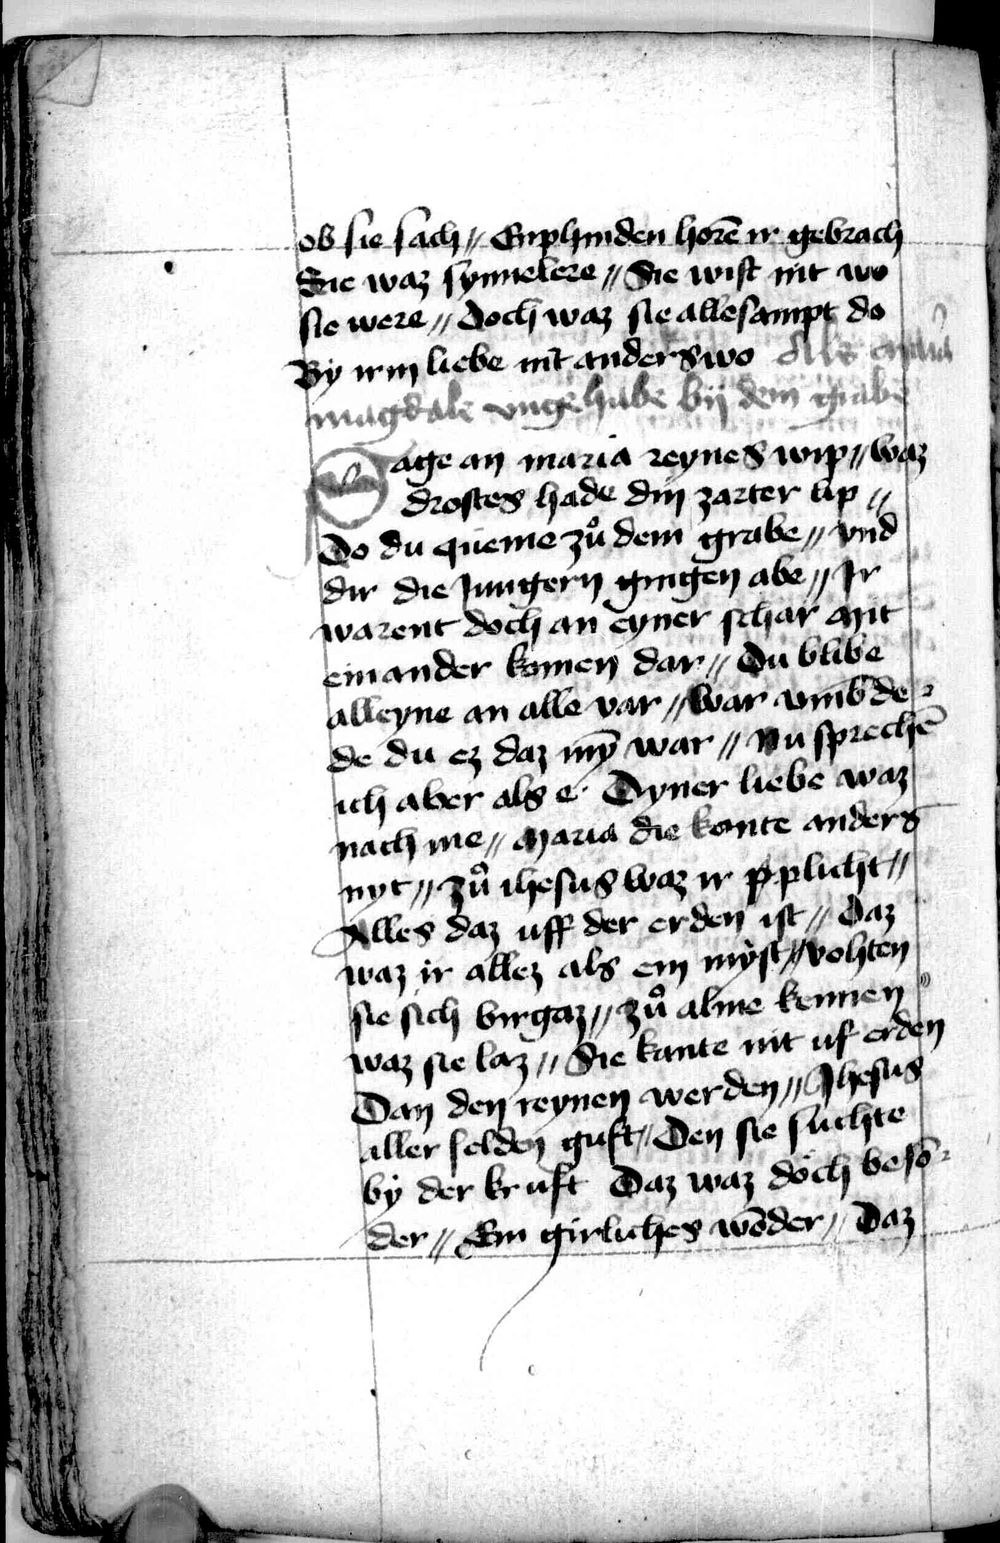 ob sie sach // Enphinden horē ir gebrach
Sie waz synnelere // Sie wist nit wo
sie were // Doch waz sie allesampt do
By irm liebe nit anderswo Als maria
magdale ungehabe bij dem grabe
Sage an maria reynes wip // waz
drostes hade din zarter lip //
Do du queme zuͦ dem grabe // vnd
dir die Jungern gingen abe // Ir
warent doch an eyner schar mit
einander komen dar // Du blibe
alleyne an alle var // war vmb de-
de du ez daz mȳ war // Nu sprechē
ich aber als e · Dyner liebe waz
nach me // Maria die konte anders
nyt // zuͦ ihesus waz ir pplicht //
Alles daz uff der erden ist // Daz
waz ir allez als ein myst // vohten
sie sich virgaz // zuͦ alme kennen
waz sie laz // Sie kante nit uf erden
Dan den reynen werden // Jhesus
aller selden guft // Den sie suchte
by der kruft Daz waz doch besō-
der // Ein girliches wōder // Daz